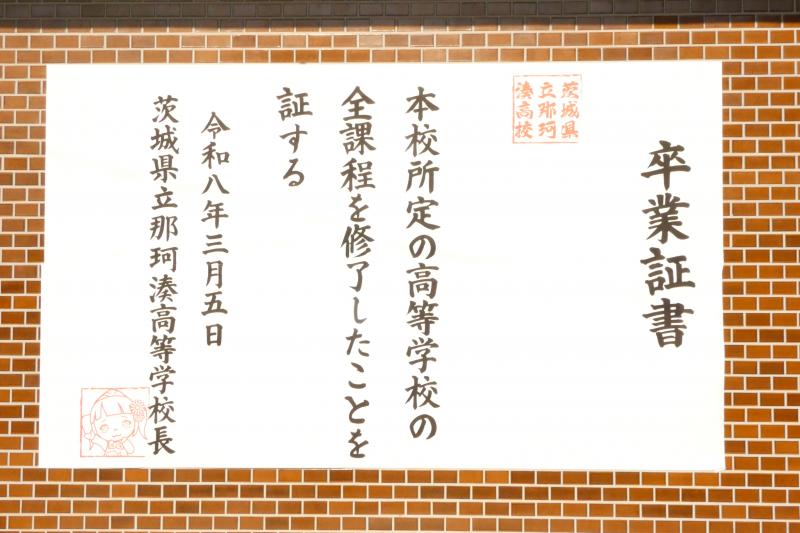 卒業証書
茨城県
立那珂
湊高校
本校所定の高等学校の
全課程を修了したことを
証する
令和八年三月五日
茨城県立那珂湊高等学校長